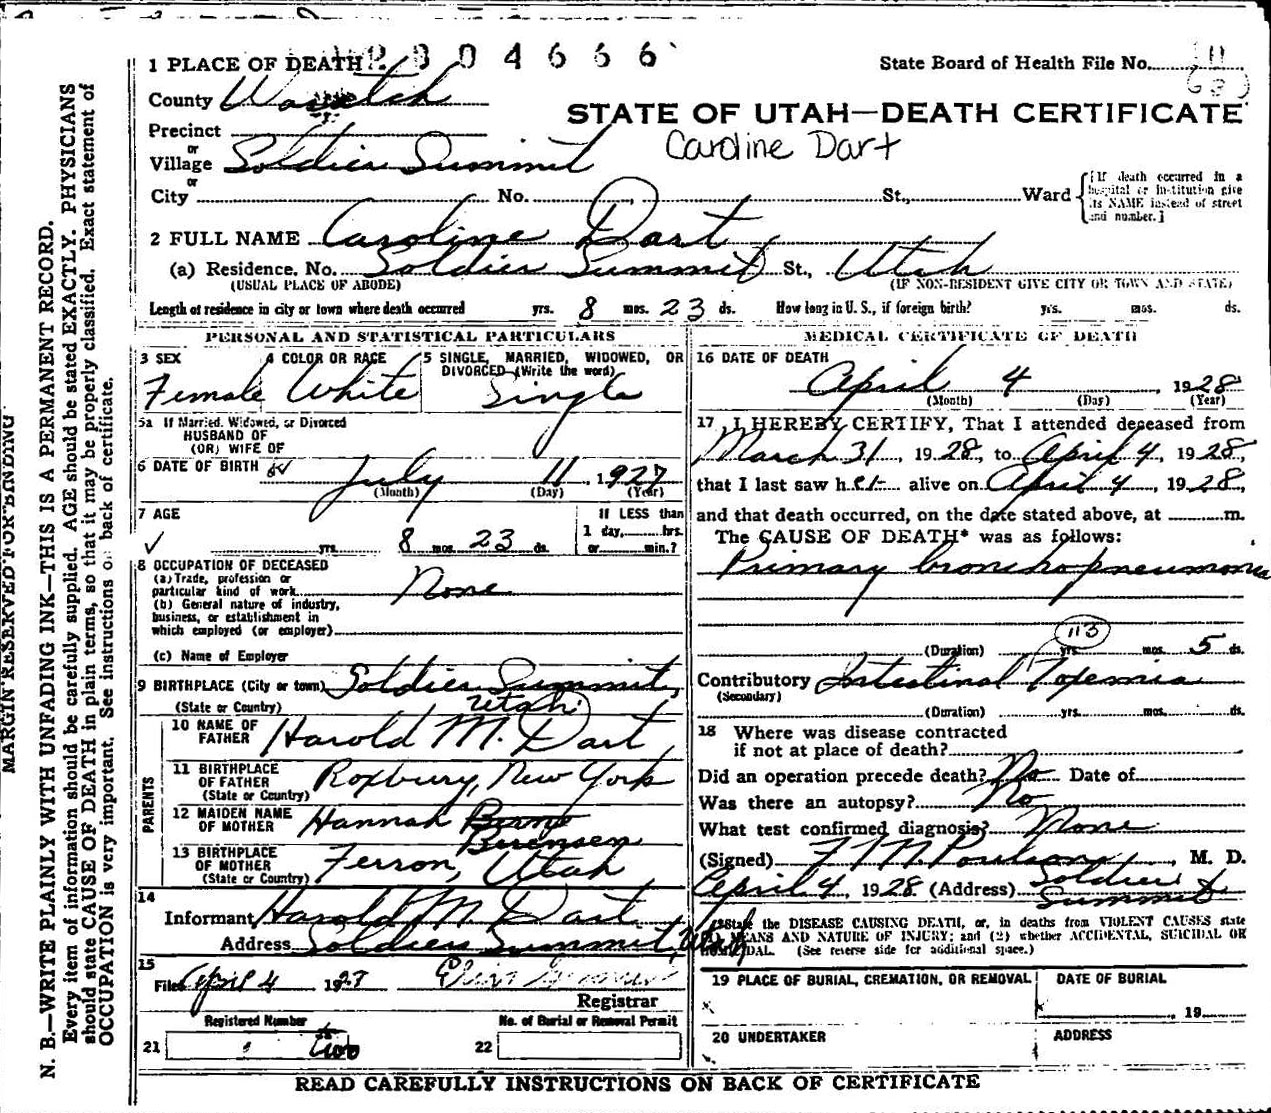 1 PLACE OF DEATH 2804666
State Board of Health File No. 11
63
County Wasatch
STATE OF UTAH—DEATH CERTIFICATE
Caroline Dart
Precinct
or
Village Soldier Summit
or
City No. St., Ward
{If death occurred in a hospital or institution give its NAME instead of street and number.}
2 FULL NAME Caroline Dart
(a) Residence. No. Soldier Summit St., Utah
(USUAL PLACE OF ABODE) (IF NON-RESIDENT GIVE CITY OR TOWN AND STATE)
Length of residence in city or town where death occurred yrs. 8 mos. 23 ds. How long in U. S., if foreign birth? yrs. mos. ds.
PERSONAL AND STATISTICAL PARTICULARS
3 SEX 4 COLOR OR RACE 5 SINGLE, MARRIED, WIDOWED, OR DIVORCED (Write the word)
Female White Single
5a If Married, Widowed, or Divorced
HUSBAND OF
(OR) WIFE OF
6 DATE OF BIRTH July 11, 1927
(Month) (Day) (Year)
7 AGE If LESS than
1 day, hrs.
yrs. 8 mos. 23 ds. or min.?
8 OCCUPATION OF DECEASED
(a) Trade, profession or
particular kind of work None
(b) General nature of industry,
business, or establishment in
which employed (or employer)
(c) Name of Employer
9 BIRTHPLACE (City or town) Soldier Summit,
(State or Country) Utah
PARENTS
10 NAME OF FATHER Harold M. Dart
11 BIRTHPLACE OF FATHER Roxbury, New York
(State or Country)
12 MAIDEN NAME OF MOTHER Hannah Berensen
13 BIRTHPLACE OF MOTHER Ferron, Utah
(State or Country)
14
Informant Harold M Dart
Address Soldiers Summit, Utah
15
Filed April 4 1927
Registrar
Registered Number No. of Burial or Removal Permit
21 two 22
MEDICAL CERTIFICATE OF DEATH
16 DATE OF DEATH
April 4, 1928
(Month) (Day) (Year)
17 I HEREBY CERTIFY, That I attended deceased from
March 31, 1928, to April 4, 1928,
that I last saw her alive on April 4, 1928,
and that death occurred, on the date stated above, at m.
The CAUSE OF DEATH* was as follows:
Primary bronchopneumonia
113
(Duration) yrs. mos. 5 ds.
Contributory Intestinal Toxemia
(Secondary)
(Duration) yrs. mos. ds.
18 Where was disease contracted
if not at place of death?
Did an operation precede death? No Date of
Was there an autopsy? No
What test confirmed diagnosis? None
(Signed) F M Poulson, M. D.
April 4, 1928 (Address) Soldier Summit
*State the DISEASE CAUSING DEATH, or, in deaths from VIOLENT CAUSES state
(1) MEANS AND NATURE OF INJURY; and (2) whether ACCIDENTAL, SUICIDAL OR
HOMICIDAL. (See reverse side for additional space.)
19 PLACE OF BURIAL, CREMATION, OR REMOVAL DATE OF BURIAL
, 19
20 UNDERTAKER ADDRESS
READ CAREFULLY INSTRUCTIONS ON BACK OF CERTIFICATE
MARGIN RESERVED FOR BINDING
N. B.—WRITE PLAINLY WITH UNFADING INK—THIS IS A PERMANENT RECORD.
Every item of information should be carefully supplied. AGE should be stated EXACTLY. PHYSICIANS
should state CAUSE OF DEATH in plain terms, so that it may be properly classified. Exact statement of
OCCUPATION is very important. See instructions on back of certificate.